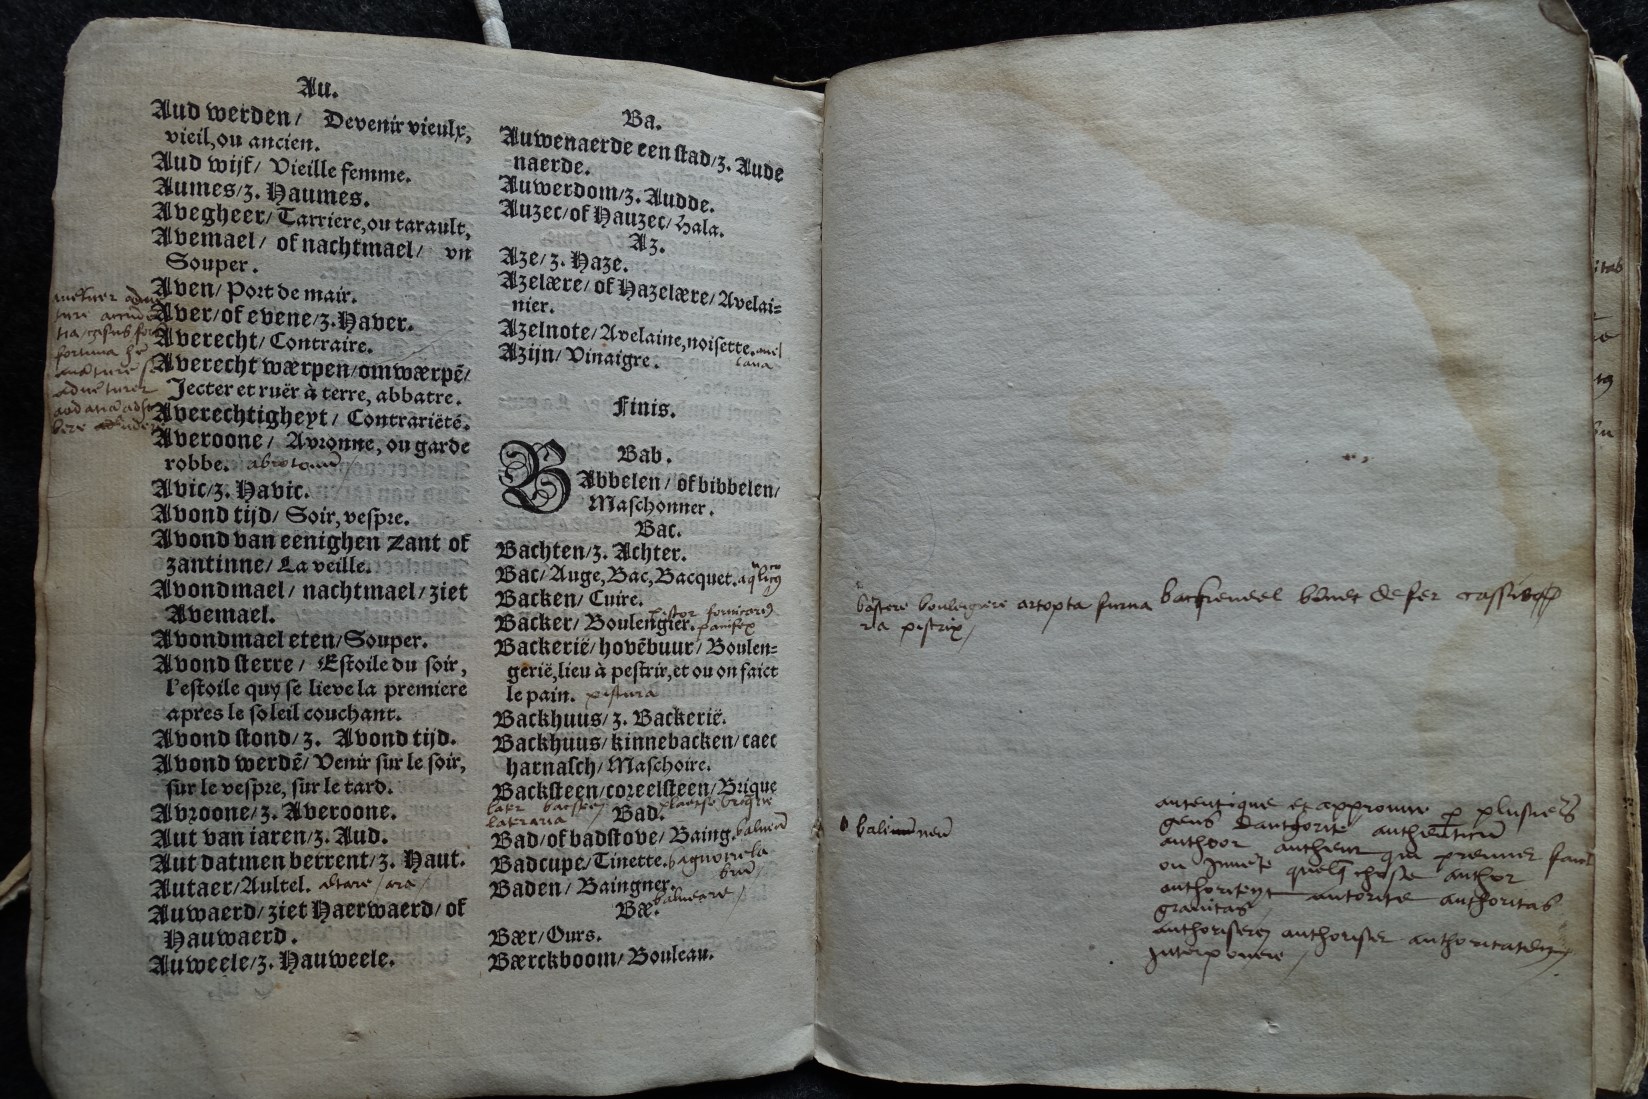 Au.
Aud werden/ Devenir vieulx,
vieil, ou ancien.
Aud wijf/ Vieille femme.
Aumes/z. Haumes.
Avegheer/ Tarriere, ou tarault,
Avemael/ of nachtmael/ vn
Souper.
Aven/ Port de mair.
Aver/of evene/z. Haver.
Averecht/ Contraire.
Averecht wærpen/omwærpē/
Jecter et ruër à terre, abbatre.
Averechtigheyt/ Contrariëté.
Averoone/ Avronne, ou garde
robbe. abrotonū
Avic/z. Havic.
Avond tijd/ Soir, vespre.
Avond van eenighen Zant of
zantinne/ La veille.
Avondmael/ nachtmael/ ziet
Avemael.
Avondmael eten/Souper.
Avond sterre/ Estoile du soir,
l'estoile quy se lieve la premiere
apres le soleil couchant.
Avond stond/z. Avond tijd.
Avond werdē/ Venir sur le soir,
sur le vespre, sur le tard.
Avroone/z. Averoone.
Aut van iaren/z. Aud.
Aut datmen betrent/z. Haut.
Autaer/Aultel. altare / ara /
Auwaerd/ziet Haerwaerd/ of
Hauwaerd.
Auweele/z. Hauweele.
Ba.
Auwenaerde een stad/z. Aude
naerde.
Auwerdom/z. Audde.
Auzec/of Hauzec/Hala.
Az.
Aze/z. Haze.
Azelære/ of Hazelære/ Avelai=
nier.
Azelnote/ Avelaine, noisette. avel
lana
Azijn/ Vinaigre.
Finis.
Bab.
BAbbelen/ of bibbelen/
Maschonner.
Bac.
Bachten/z. Achter.
Bac/Auge, Bac, Bacquet.
Backen/ Cuire.
Backer/ Boulengier. pistor
panifex
Backerië/hovēbuur/ Boulen=
gerië, lieu à pestrir, et ou on faict
le pain. pistura
Backhuus/z. Backerië.
Backhuus/kinnebacken/caec
harnasch/Maschoire.
Backsteen/coreelsteen/Brique
later
lateraria
Bad.
Bad/of badstove/ Baing. balneū
Badcupe/Tinette.
Baden/ Baingner.
balneare /
Bæ.
Bær/Ours.
Bærckboom/Bouleau.
boulengiere artopta furna
ria pistrix/
balineum
autentique et approuve p plusieurs
gens dauthorite authenticū
author autheur qui premier faict
ou Invēte quelq chose author
authoriteyt autorite authoritas
gravitas
authoriseren authoriser authoritatem
Interponere /